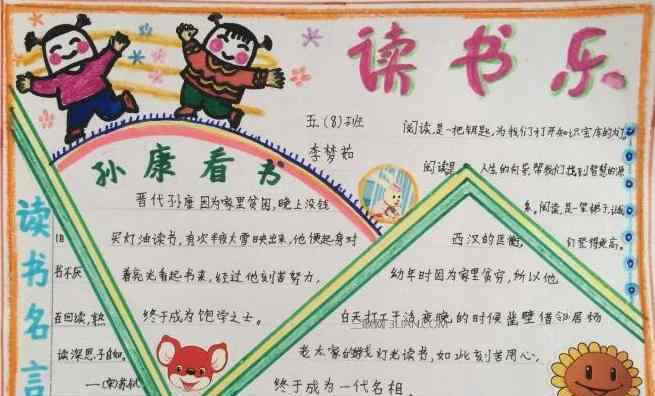 读书乐
五(8)班
李梦茹
阅读,是一把钥匙,为我们打开知识宝库的大门
阅读是 人生的向导,帮我们找到智慧的源
泉。阅读,是一架梯子,让我
们登得更高。
孙康看书
晋代孙康因为家里贫困,晚上没钱
买灯油读书,有次半夜大雪映出来,他便起身对
着亮光看起书来,经过他刻苦努力,
终于成为饱学之士。
西汉的匡衡,
幼年时因为家里贫穷,所以他
白天打工干活,夜晚的时候凿壁借邻居杨
老太家的灯光读书,如此刻苦用心,
终于成为一代名相。
读书名言
旧
书不厌
百回读,熟
读深思子自知。
——(宋)苏轼
三联网 3LIAN.COM